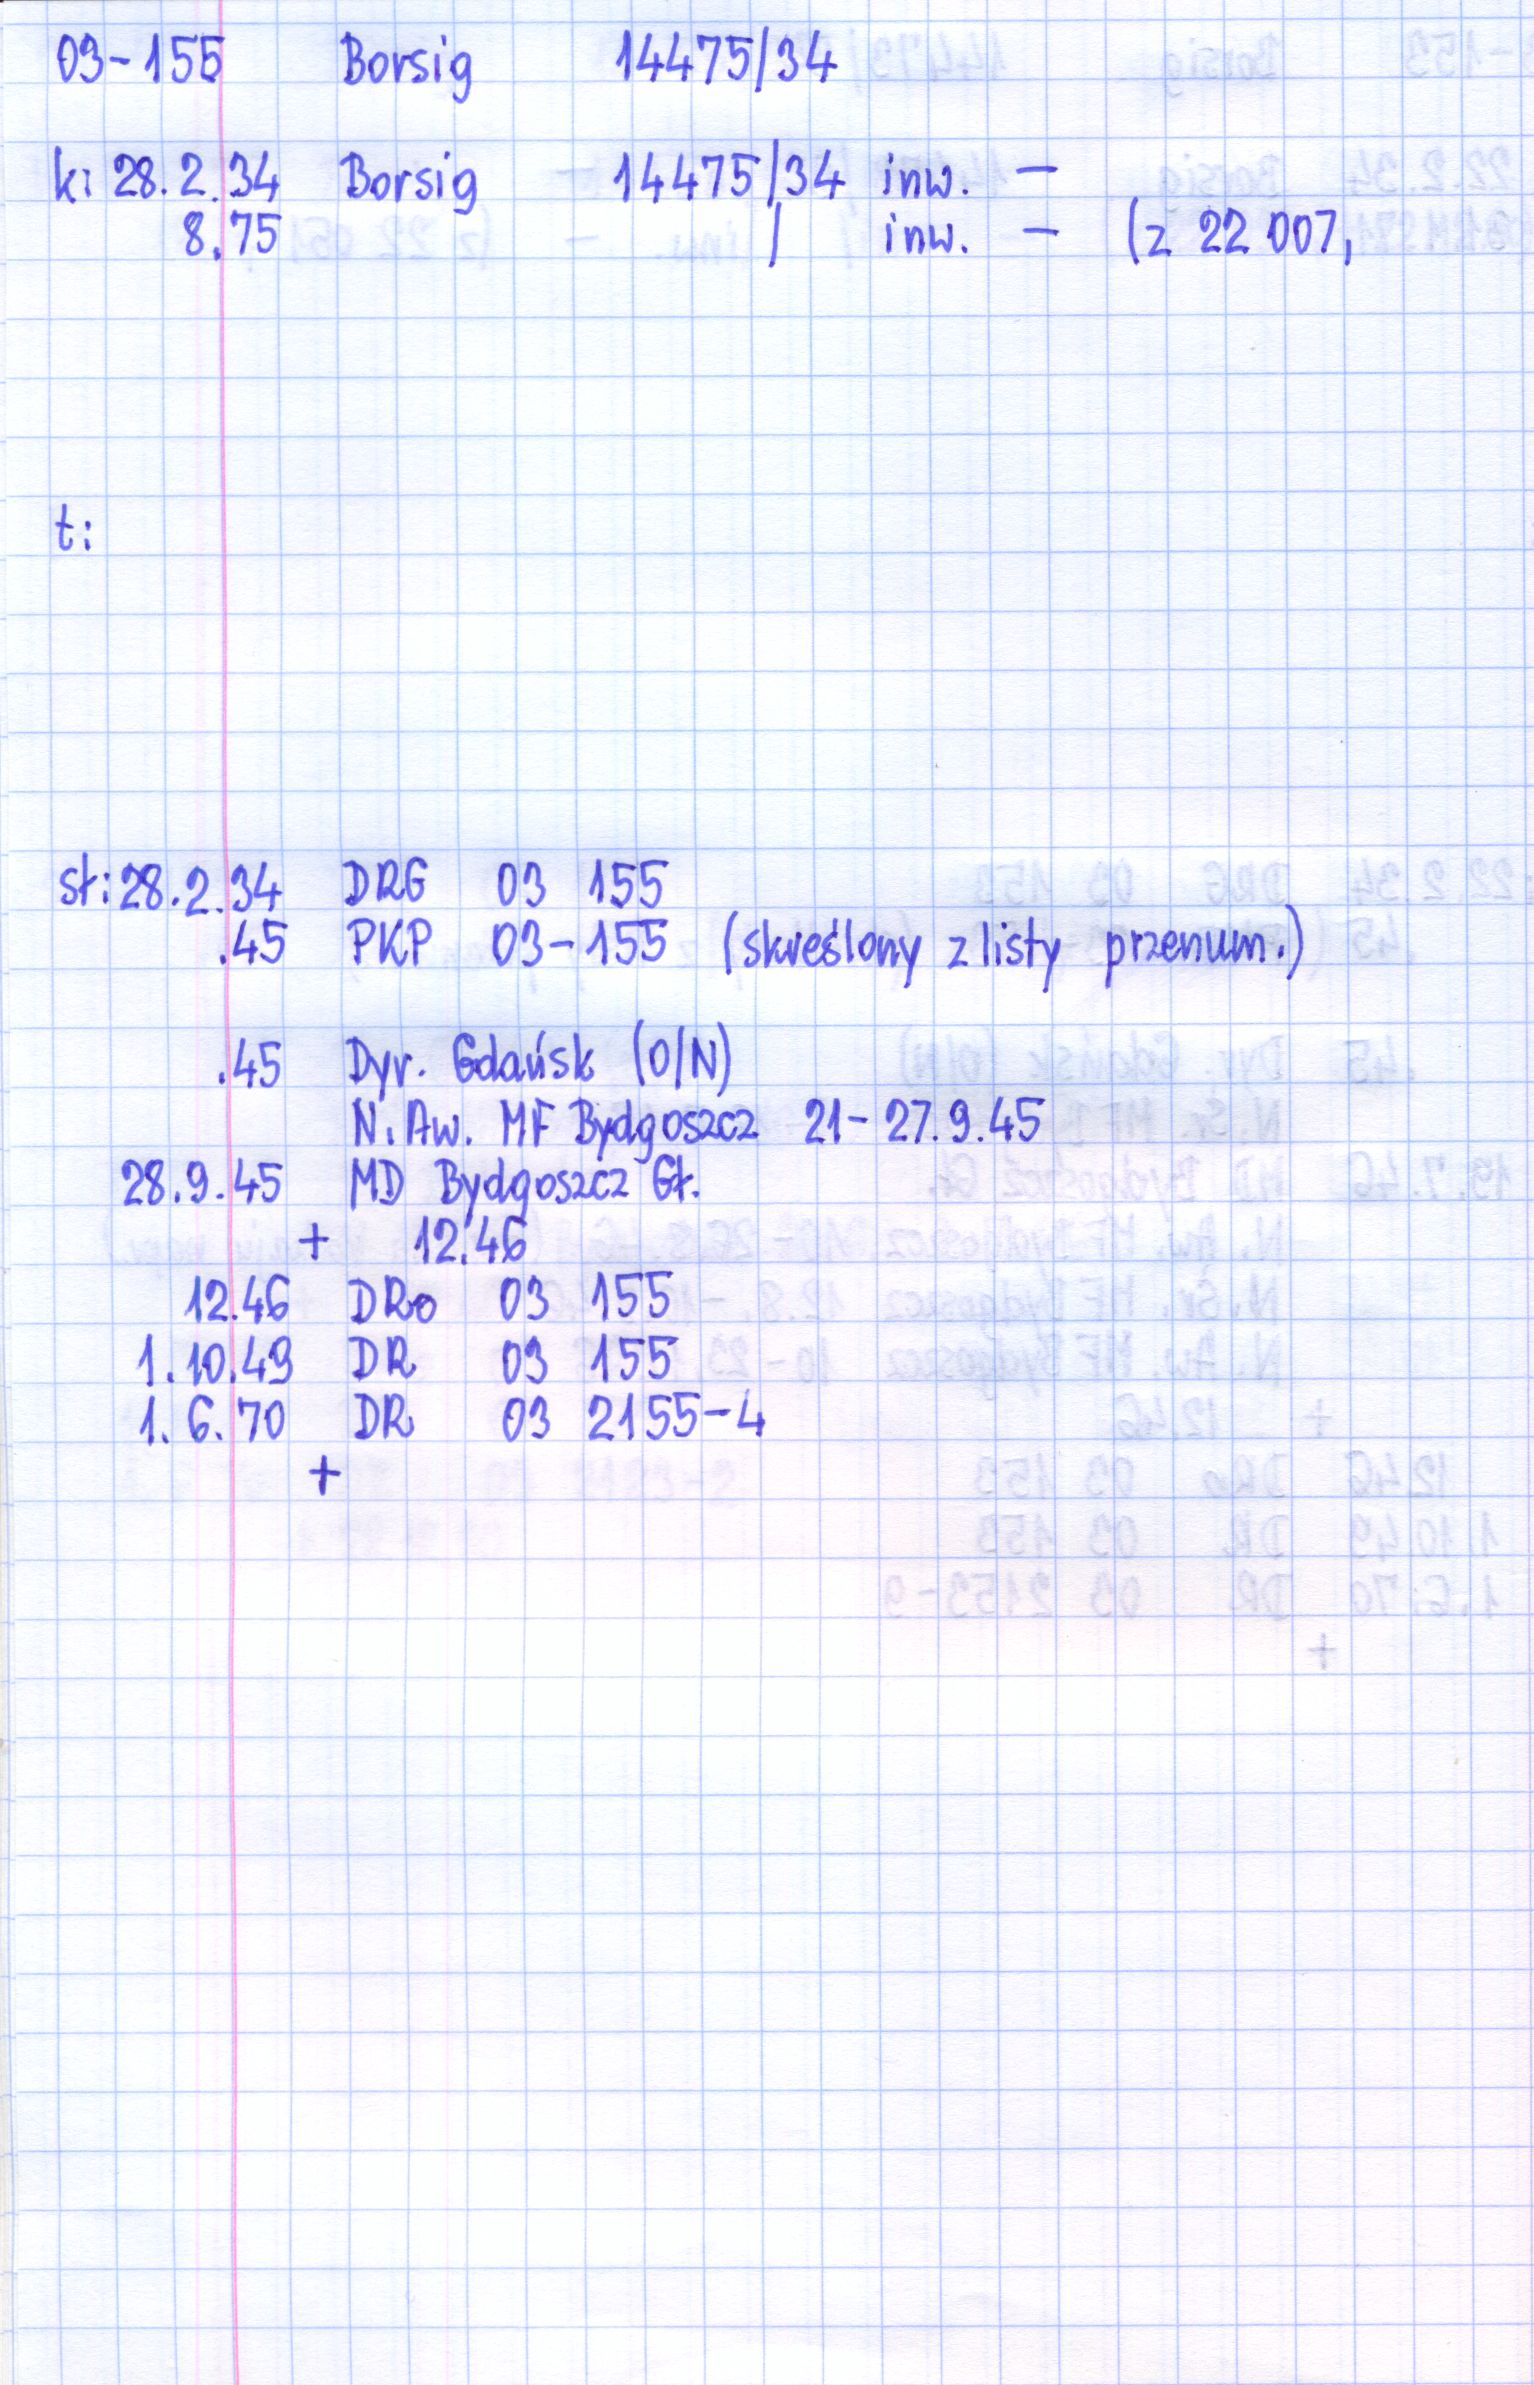 03-155 Borsig 14475/34
k: 28.2.34 Borsig 14475/34 inw. –
8.75 / inw. – (z 22 007,
t:
st: 28.2.34 DRG 03 155
.45 PKP 03-155 (skreślony z listy przenum.)
.45 Dyr. Gdańsk (O/N)
N. Aw. MF Bydgoszcz 21-27.9.45
28.9.45 MD Bydgoszcz Gł.
+ 12.46
12.46 DRo 03 155
1.10.49 DR 03 155
1.6.70 DR 03 2155-4
+